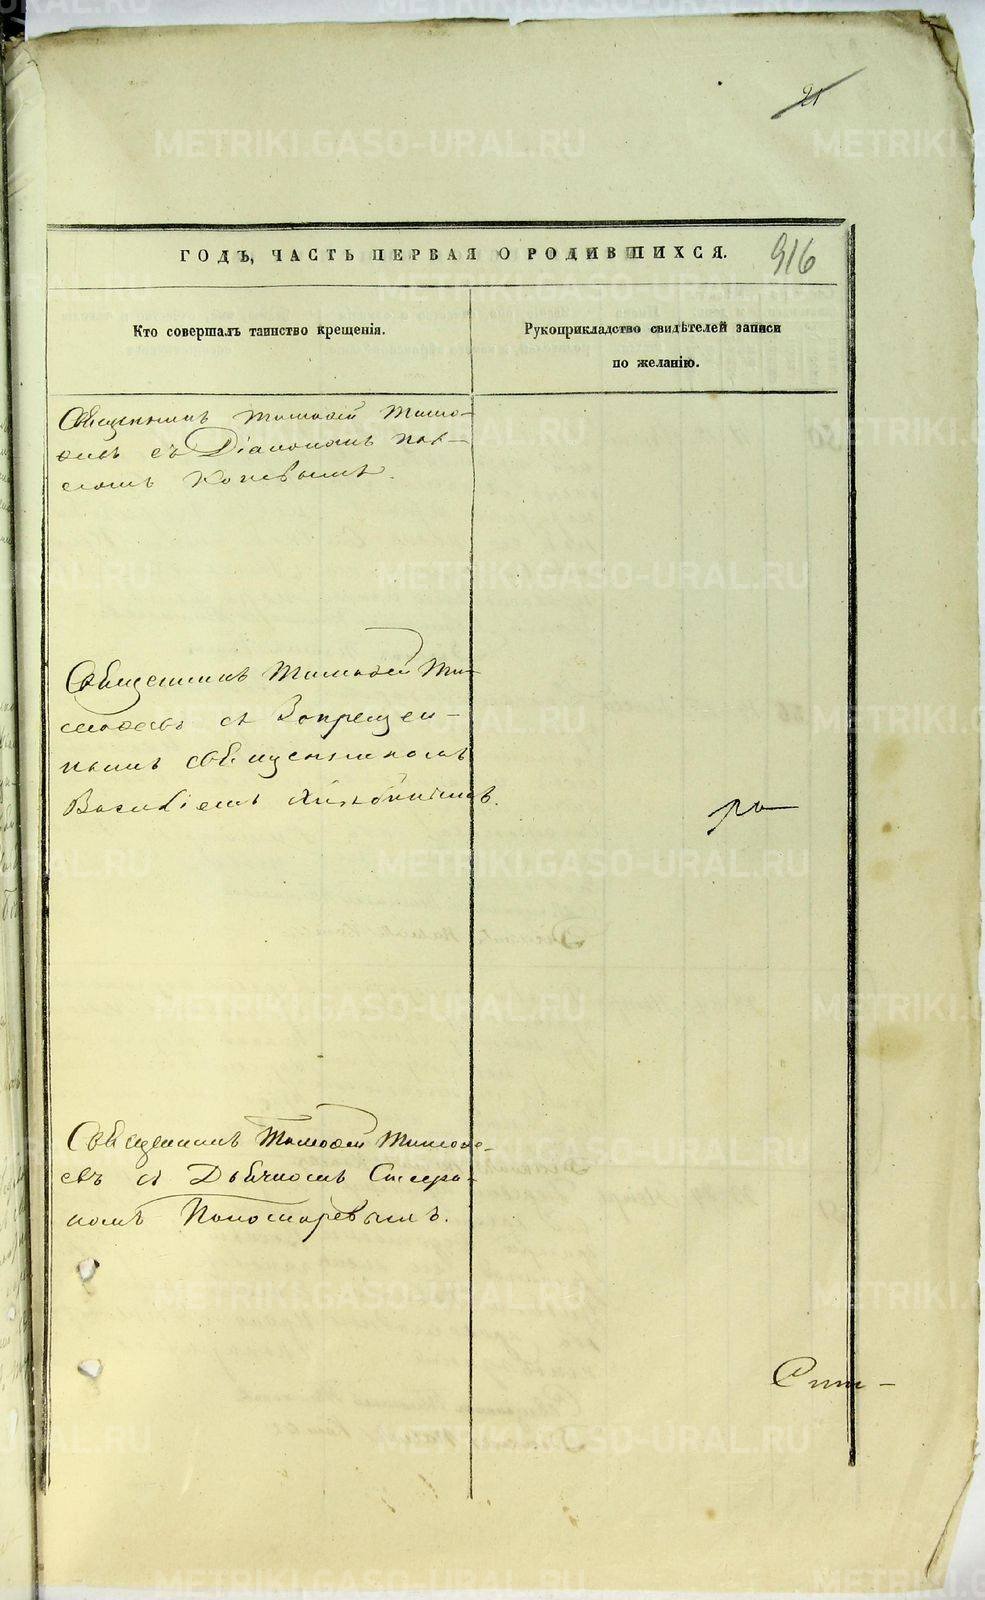 21
ГОДЪ, ЧАСТЬ ПЕРВАЯ О РОДИВШИХСЯ. 916
Кто совершалъ таинство крещенія.
Рукоприкладство свидѣтелей записи
по желанію.
Священникъ Тимофей Тимо-
ѳеевъ съ Діакономъ Пав-
ломъ Коневымъ.
Священникъ Тимофей Ти-
мофеевъ съ Запрещен-
нымъ священникомъ
Василіемъ
Священникъ Тимофей Тимофе-
евъ съ Дьячкомъ
Пономаревымъ.
METRIKI.GASO-URAL.RU